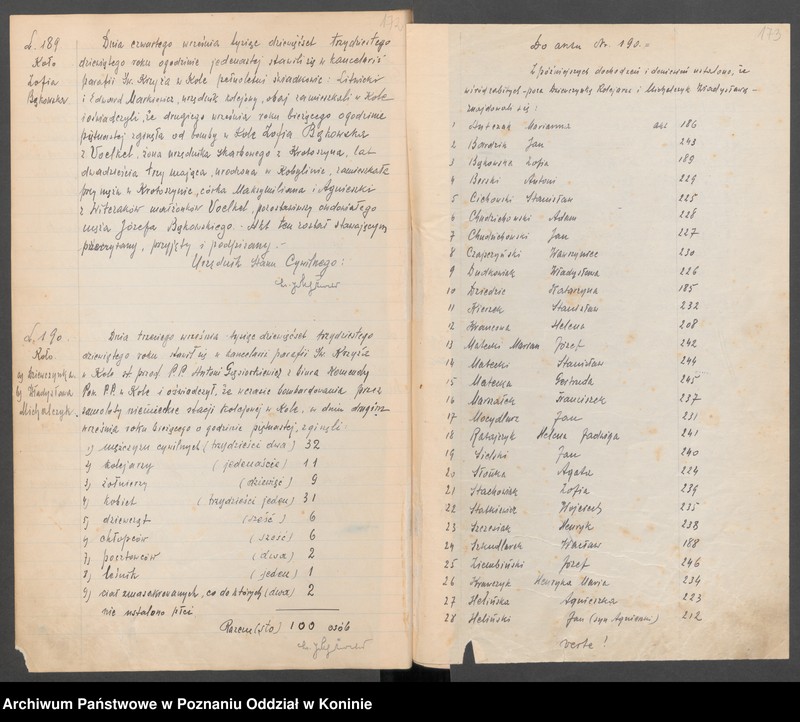 172
L. 189
Koło
Zofia
Bąkowska
Dnia czwartego września tysiąc dziewięćset trzydziestego
dziewiątego roku o godzinie jedenastej stawili się w kancelarii
parafii Św. Krzyża w Kole pełnoletni świadkowie:
i Edward Markowicz, urzędnik kolejny, obaj zamieszkali w Kole
i oświadczyli, że drugiego września roku bieżącego o godzinie
piętnastej zginęła od bomby w Kole Zofia Bąkowska
z Voelkel, żona urzędnika skarbowego z Krotoszyna, lat
dwadzieścia trzy mająca, urodzona w Kobylinie, zamieszkała
przy mężu w Krotoszynie, córka Maksymiliana i Agnieszki
z Witczaków małżonków Voelkel, pozostawiwszy owdowiałego
męża Józefa Bąkowskiego. Akt ten został stawającym
przeczytany, przyjęty i podpisany.-
Urzędnik Stanu Cywilnego:
L. 190.
Koło.
Władysława
Michalczyk.
Dnia trzeciego września tysiąc dziewięćset trzydziestego
dziewiątego roku stawił się w kancelarii parafii Św. Krzyża
w Kole st. przod. P.P. Antoni Gąsiorkiewicz z biura Komendy
Pow. P.P. w Kole i oświadczył, że w czasie bombardowania przez
samoloty niemieckie stacji kolejowej w Kole, w dniu drugim
września roku bieżącego o godzinie piętnastej, zginęli:
1) mężczyzn cywilnych (trzydzieści dwa) 32
2) kolejarzy (jedenaście) 11
3) żołnierzy (dziewięć) 9
4) kobiet (trzydzieści jeden) 31
5) dziewcząt (sześć) 6
6) chłopców (sześć) 6
7) pocztowców (dwa) 2
8) leśnik (jeden) 1
9) ciał zmasakrowanych, co do których (dwa) 2
nie ustalono płci
Razem (sto) 100 osób
173
Do aktu Nr. 190.-
Z późniejszych dochodzeń i doniesień ustalono, że
wśród zabitych - poza Dziewczynką Kolejarza i Michalczyk Władysławą -
znajdowali się:
1 Antczak Marianna akt 186
2 Bardzik Jan 243
3 Bąkowska Zofia 189
4 Berski Antoni 229
5 Cichowski Stanisław 225
6 Chudzichowski Adam 228
7 Chudzichowski Jan 227
8 Czapczyński Wawrzyniec 230
9 Dudkowiak Władysława 226
10 Dziedzic Katarzyna 185
11 Kieszek Stanisław 232
12 Helena 208
13 Matecki Marian Józef 242
14 Matecki Stanisław 244
15 Matecka Gertruda 245
16 Marszałek Franciszek 237
17 Mocydlarz Jan 231
18 Ratajczyk Helena Jadwiga 241
19 Sielski Jan 240
20 Słowika Agata 224
21 Stachowiak Zofia 239
22 Statkiewicz Wojciech 235
23 Szcześniak Henryk 238
24 Szkudlarek Wacław 188
25 Ziembiński Józef 246
26 Krawczyk Henryka Maria 234
27 Helińska Agnieszka 223
28 Heliński Jan (syn Agnieszki) 212
verte!
Archiwum Państwowe w Poznaniu Oddział w Koninie